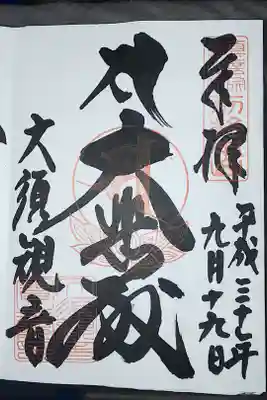 奉拝
平成二十七年
九月十九日
大悲殿
大須観音